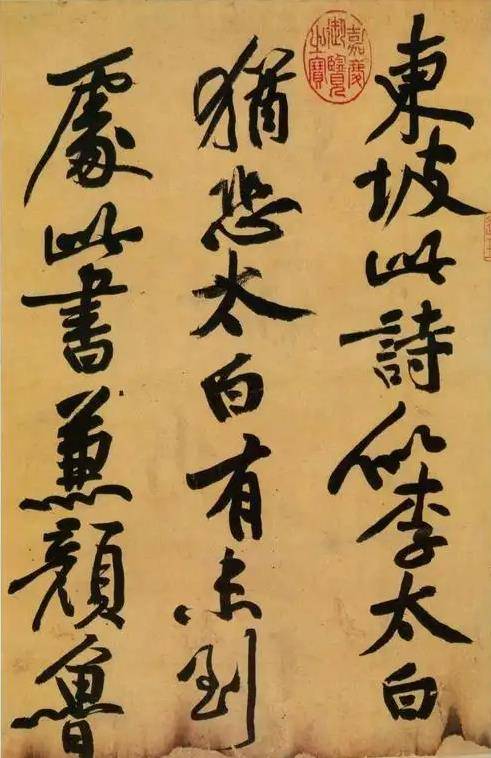 東坡此詩似李太白
猶恐太白有未到
處此書兼顏魯
嘉慶
御覽
之寶